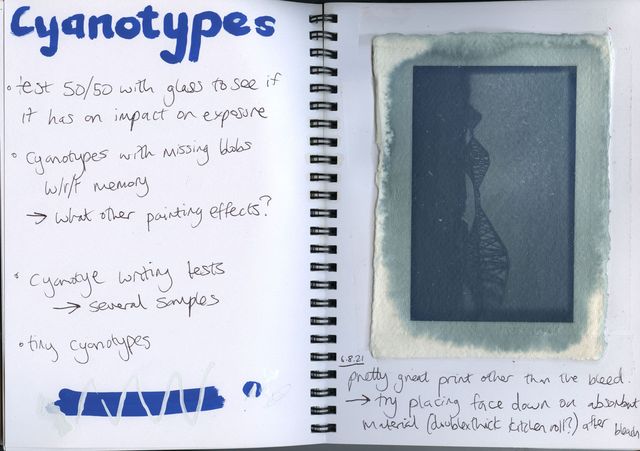 Cyanotypes
• test 50/50 with glass to see if
it has an impact on exposure
• Cyanotypes with missing blobs
w/r/t memory
→ what other painting effects?
• Cyanotye writing tests
→ several samples
• tiny cyanotypes
6.8.21
pretty great print other than the bleed.
→ try placing face down on absorbant
material (double thick kitchen roll?) after bleach